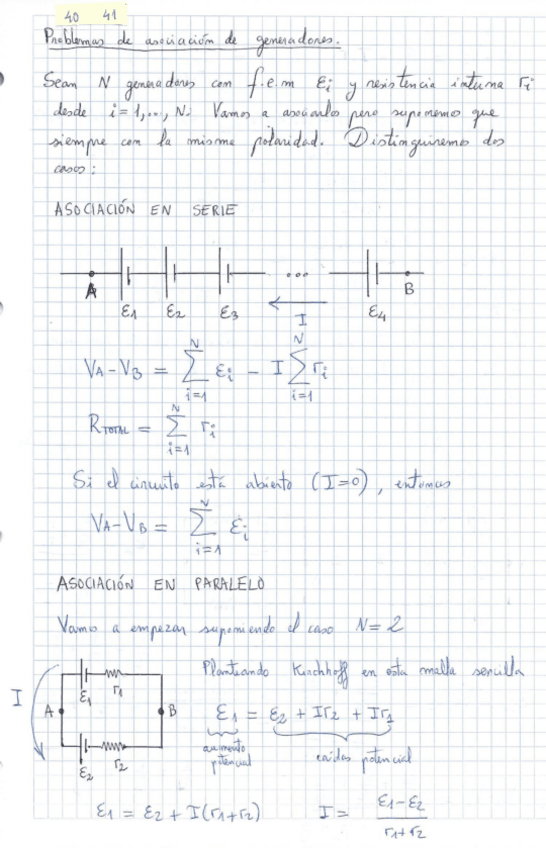 40 41
Problemas de asociación de generadores.
Sean N generadores con f.e.m εi y resistencia interna ri
desde i=1,..., N. Vamos a asociarlos pero suponemos que
siempre con la misma polaridad. Distinguiremos dos
casos:
ASOCIACIÓN EN SERIE
A ε1 ε2 ε3 ... I ε4 B
VA-VB = ∑_{i=1}^{N} εi - I ∑_{i=1}^{N} ri
RTOTAL = ∑_{i=1}^{N} ri
Si el circuito está abierto (I=0), entonces
VA-VB = ∑_{i=1}^{N} εi
ASOCIACIÓN EN PARALELO
Vamos a empezar suponiendo el caso N=2
I A ε1 r1 B ε2 r2
Planteando Kirchhoff en esta malla sencilla
ε1 = ε2 + Ir2 + Ir1
aumento potencial
caídas potencial
ε1 = ε2 + I(r1+r2) I = (ε1-ε2)/(r1+r2)